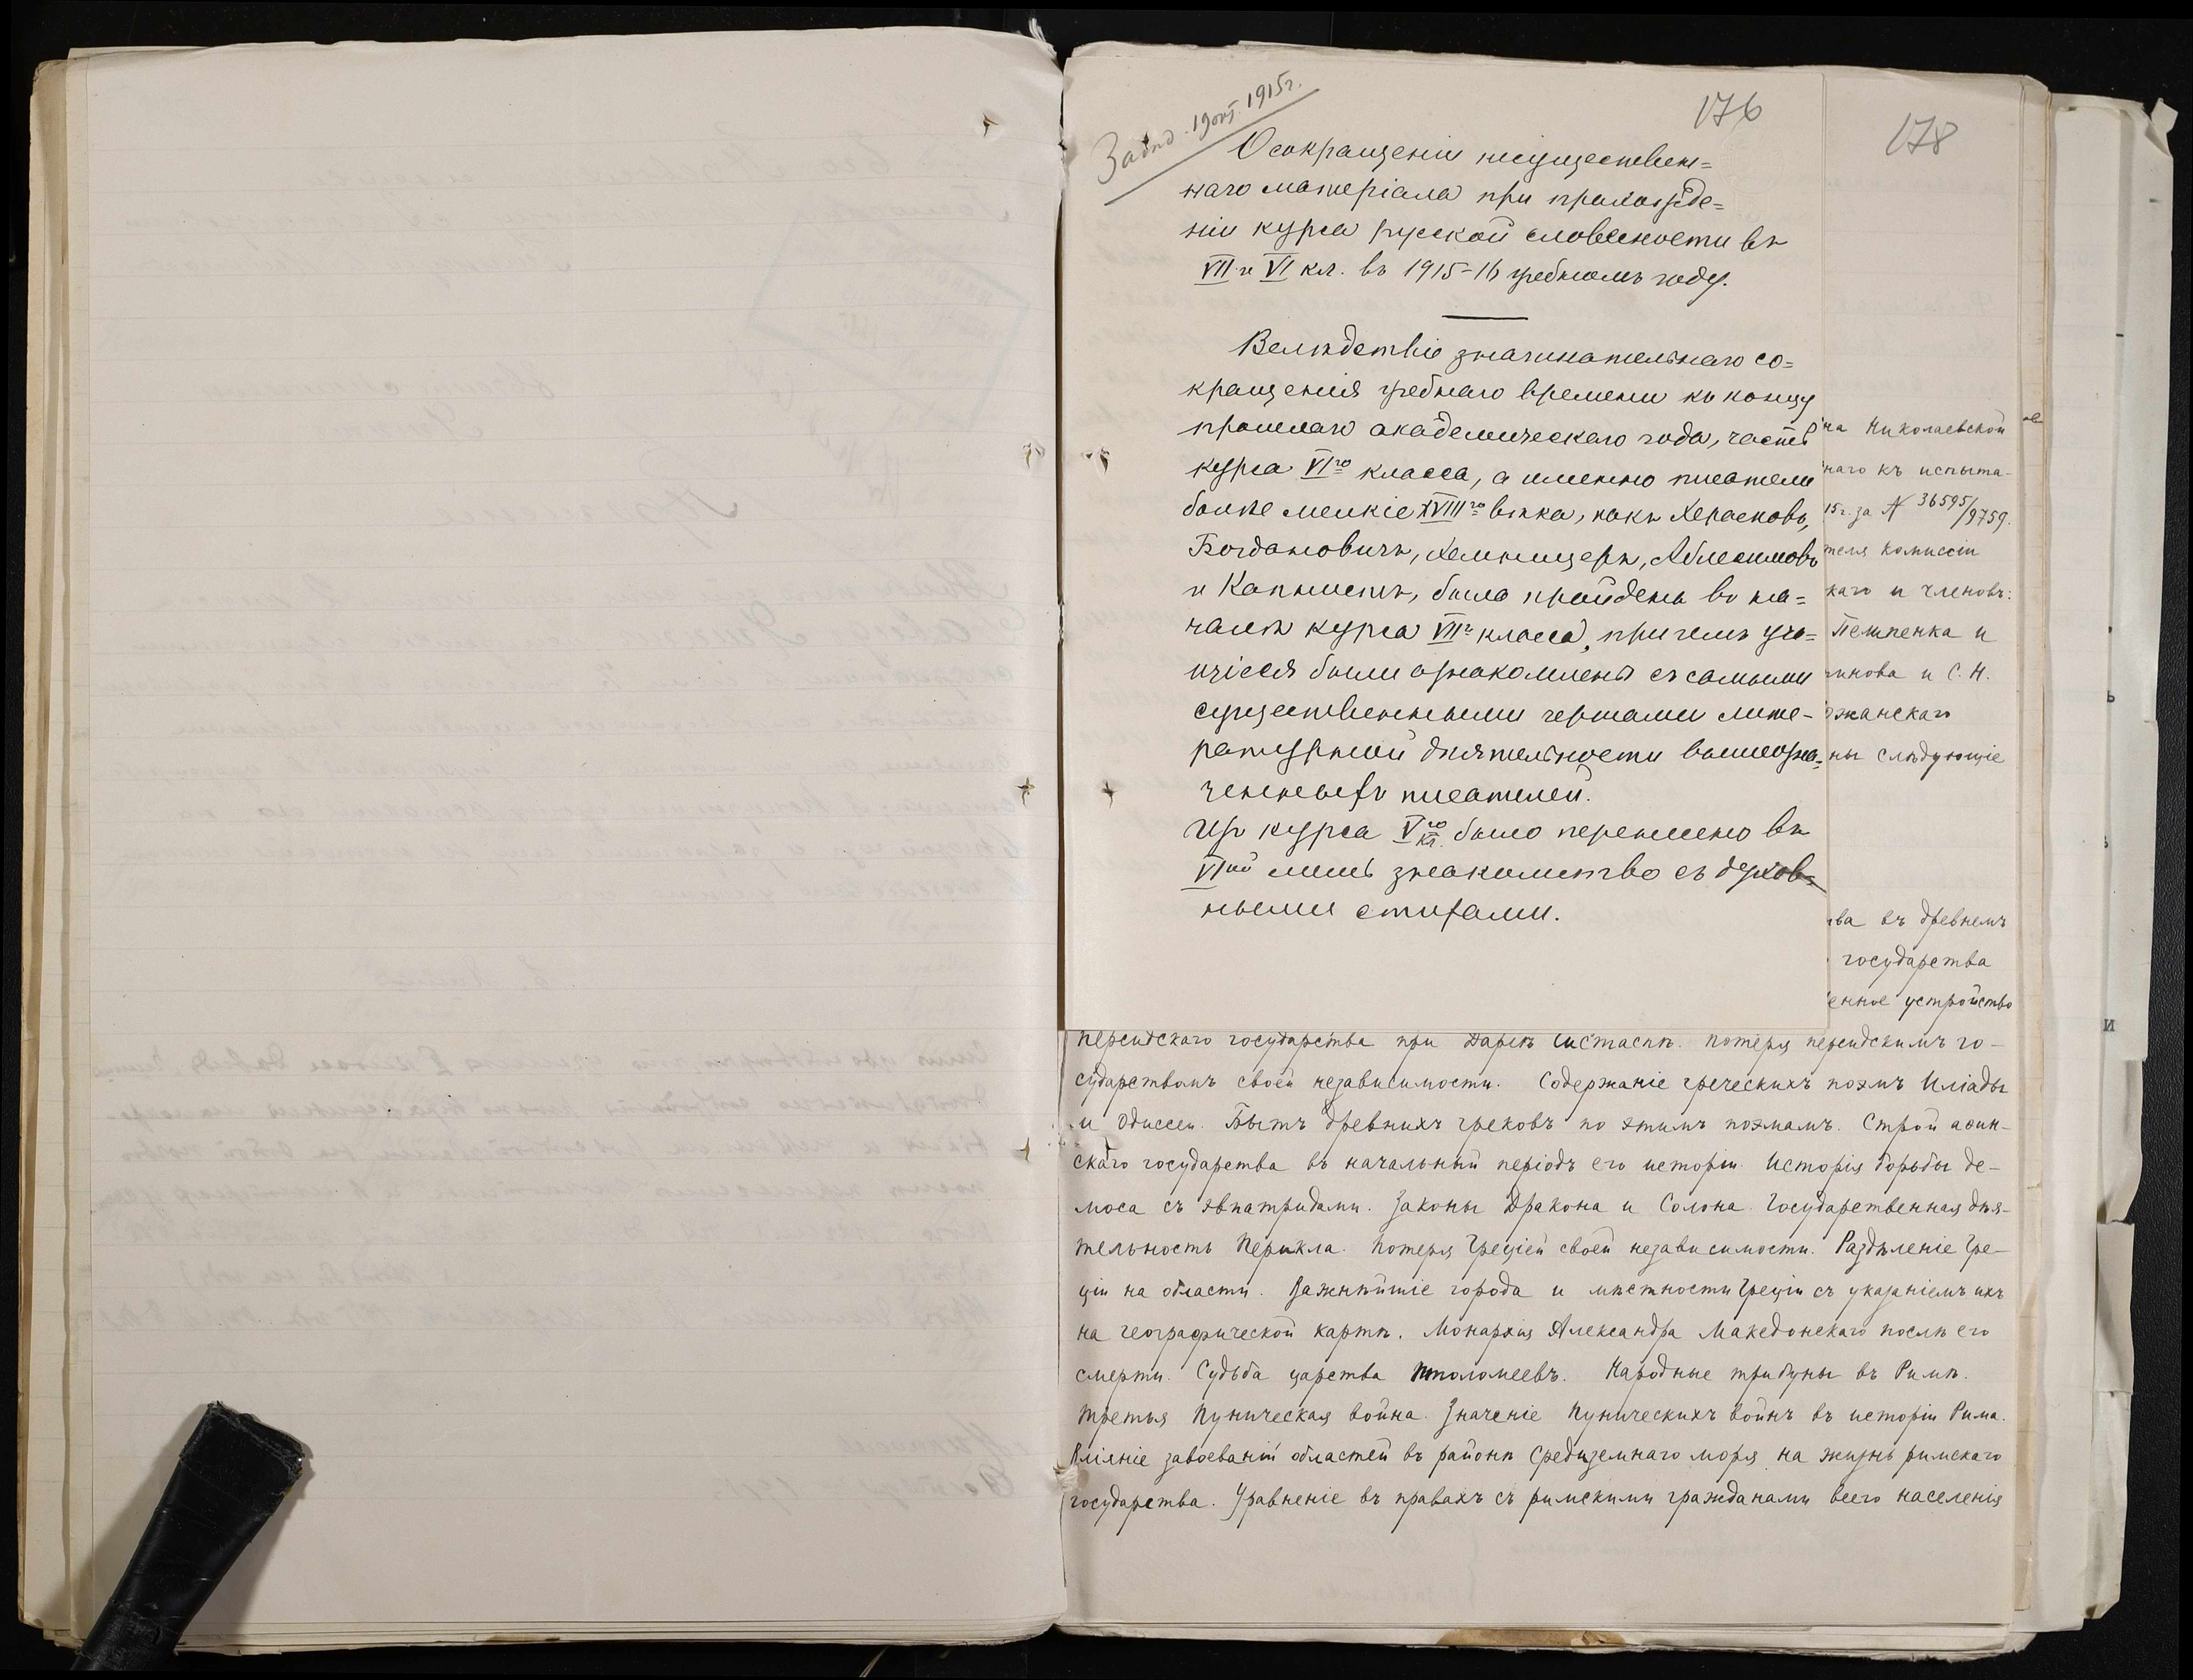 176
178
19 окт. 1915г.
О сокращеніи несуществен=
наго матеріала при прохожде=
ніи курса русской словесности въ
VII и VI кл. въ 1915-16 учебномъ году.
Вслѣдствіе значительнаго со=
кращенія учебнаго времени къ концу
прошлаго академическаго года, часть
курса VIго класса, а именно писатели
болѣе мелкіе XVIIIго вѣка, какъ Херасковъ,
Богдановичъ, Хемницеръ, Аблесимовъ
и Капнистъ, была пройдена въ на=
чалѣ курса VIIг класса, при чемъ уча=
щіеся были ознакомлены съ самыми
существенными чертами лите-
ратурной дѣятельности вышеозна=
ченныхъ писателей.
Изъ курса Vго кл. было перенесено въ
VIой лишь знакомство съ духов=
ными стихами.
на Николаевской
наго къ испыта-
15 г. за № 36595/9759.
теля комиссіи
каго и членовъ:
Пемпенка и
чинова и С. Н.
ожанскаго
ны слѣдующіе
ва въ древнемъ
государства
енное устройство
персидскаго государства при Даріѣ Гистаспѣ. Потеря персидскимъ го-
сударствомъ своей независимости. Содержаніе греческихъ поэмъ Иліады
и Одиссеи. Бытъ древнихъ грековъ по этимъ поэмамъ. Строй аѳин-
скаго государства въ начальный періодъ его исторіи. Исторія борьбы де-
моса съ эвпатридами. Законы Дракона и Солона. Государственная дѣя-
тельность Перикла. Потеря Греціей своей независимости. Раздѣленіе Гре-
ціи на области. Важнѣйшіе города и мѣстности Греціи съ указаніемъ ихъ
на географической картѣ. Монархія Александра Македонскаго послѣ его
смерти. Судьба царства Птоломеевъ. Народные трибуны въ Римѣ.
Третья Пуническая война. Значеніе Пуническихъ войнъ въ исторіи Рима.
Вліяніе завоеваній областей въ районѣ Средиземнаго моря на жизнь римскаго
государства. Уравненіе въ правахъ съ римскими гражданами всего населенія